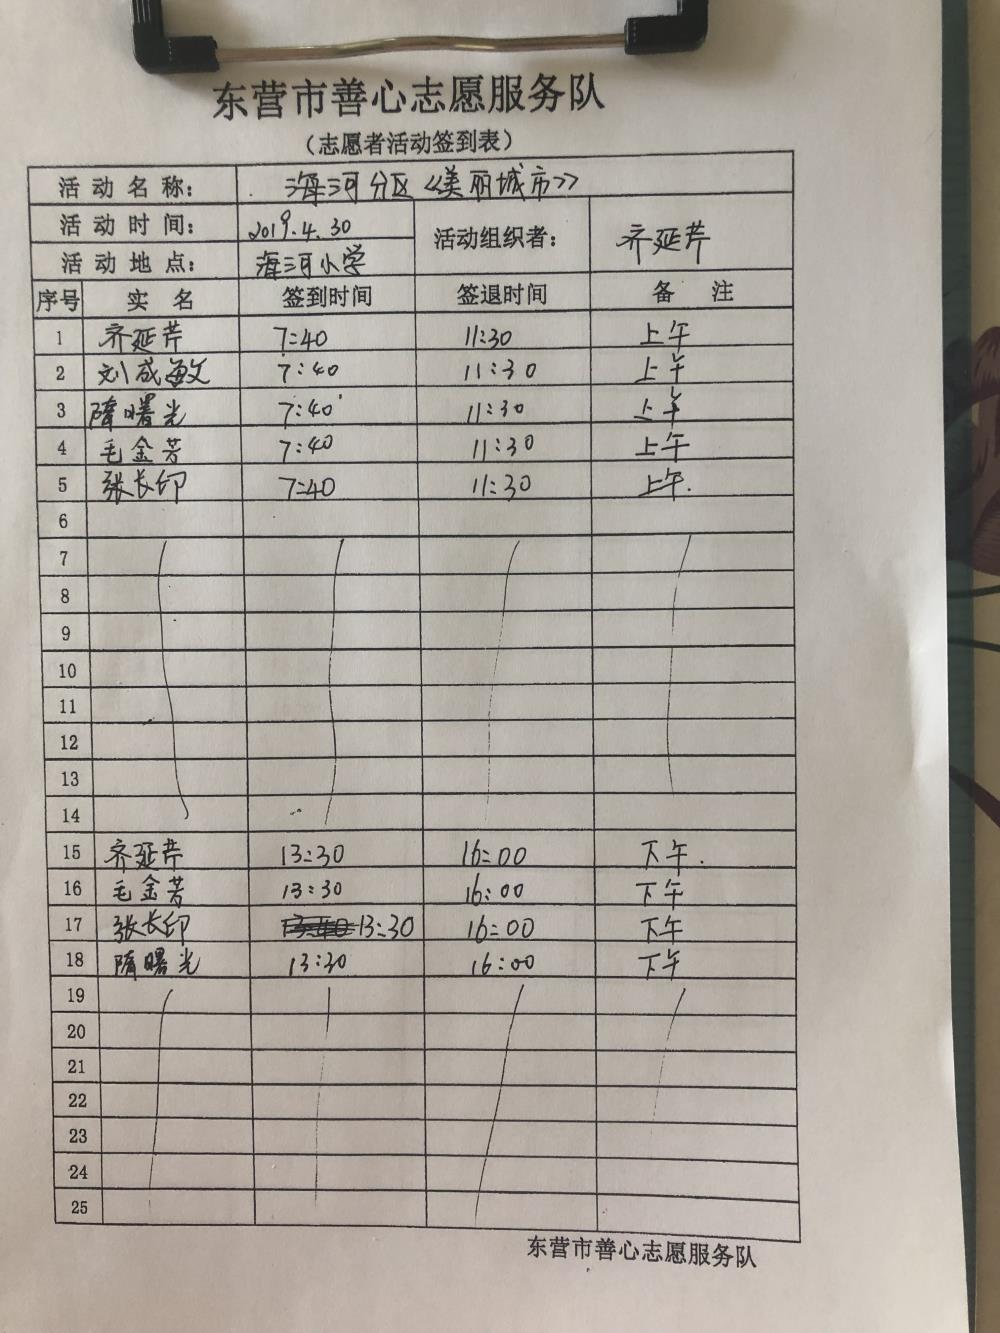 东营市善心志愿服务队
（志愿者活动签到表）
活动名称： 海河分区《美丽城市》
活动时间： 2019.4.30 活动组织者： 齐延芹
活动地点： 海河小学
序号 实名 签到时间 签退时间 备注
1 齐延芹 7:40 11:30 上午
2 刘成敏 7:40 11:30 上午
3 隋曙光 7:40 11:30 上午
4 毛金芳 7:40 11:30 上午
5 张长印 7:40 11:30 上午.
6
7
8
9
10
11
12
13
14
15 齐延芹 13:30 16:00 下午.
16 毛金芳 13:30 16:00 下午
17 张长印 13:30 16:00 下午
18 隋曙光 13:30 16:00 下午
19
20
21
22
23
24
25
东营市善心志愿服务队